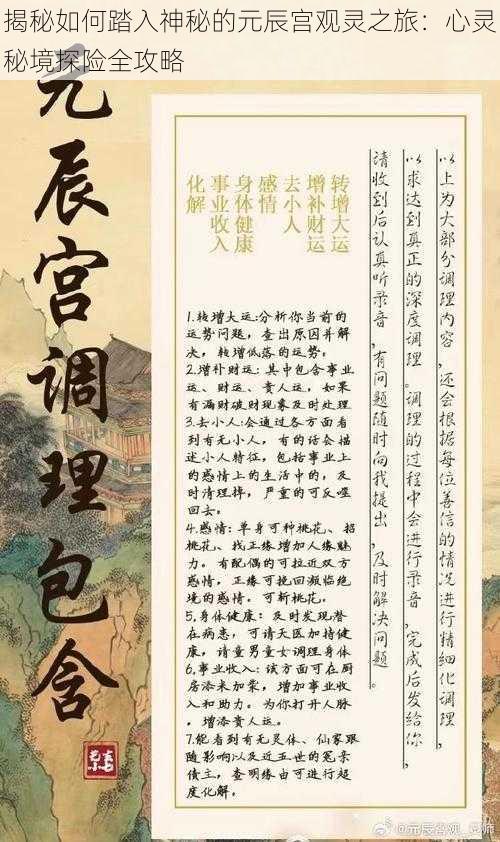 揭秘如何踏入神秘的元辰宫观灵之旅：心灵
秘境探险全攻略
元辰宫调理包含
以上为大部分调理内容，还会根据每位善信的情况进行精细化调理，
以求达到真正的深度调理。调理的过程中会进行录音，完成后发给你，
请收到后认真听录音，有问题随时向我提出，及时解决问题。
转增大运
增补财运
去小人
感情
身体健康
事业收入
化解
1.转增大运:分析你当前的
运势问题，查出原因并解
决，转增低落的运势；
2.增补财运：其中包含事业
运、财运、贵人运，如果
有漏财破财现象及时处理
3.去小人:会通过各方面看
到有无小人，有的话会描
述小人特征，包括事业上
的感情上的生活中的，及
时清理掉，严重的可反噬
回去。
4.感情:单身可种桃花、招
桃花、找正缘增加人缘魅
力。有配偶的可拉近双方
感情，正缘可挽回濒临绝
境的感情，可斩桃花。
5.身体健康：及时发现潜
在病患，可请天医加持健
康，请童男童女调理身体
6.事业收入：该方面可在厨
房添米加柴，增加事业收入
和助力。为你打开人脉
，增添贵人运。
7.能看到有无灵体、仙家跟
随影响以及近五世的冤亲
债主，查明缘由可进行超
度化解，